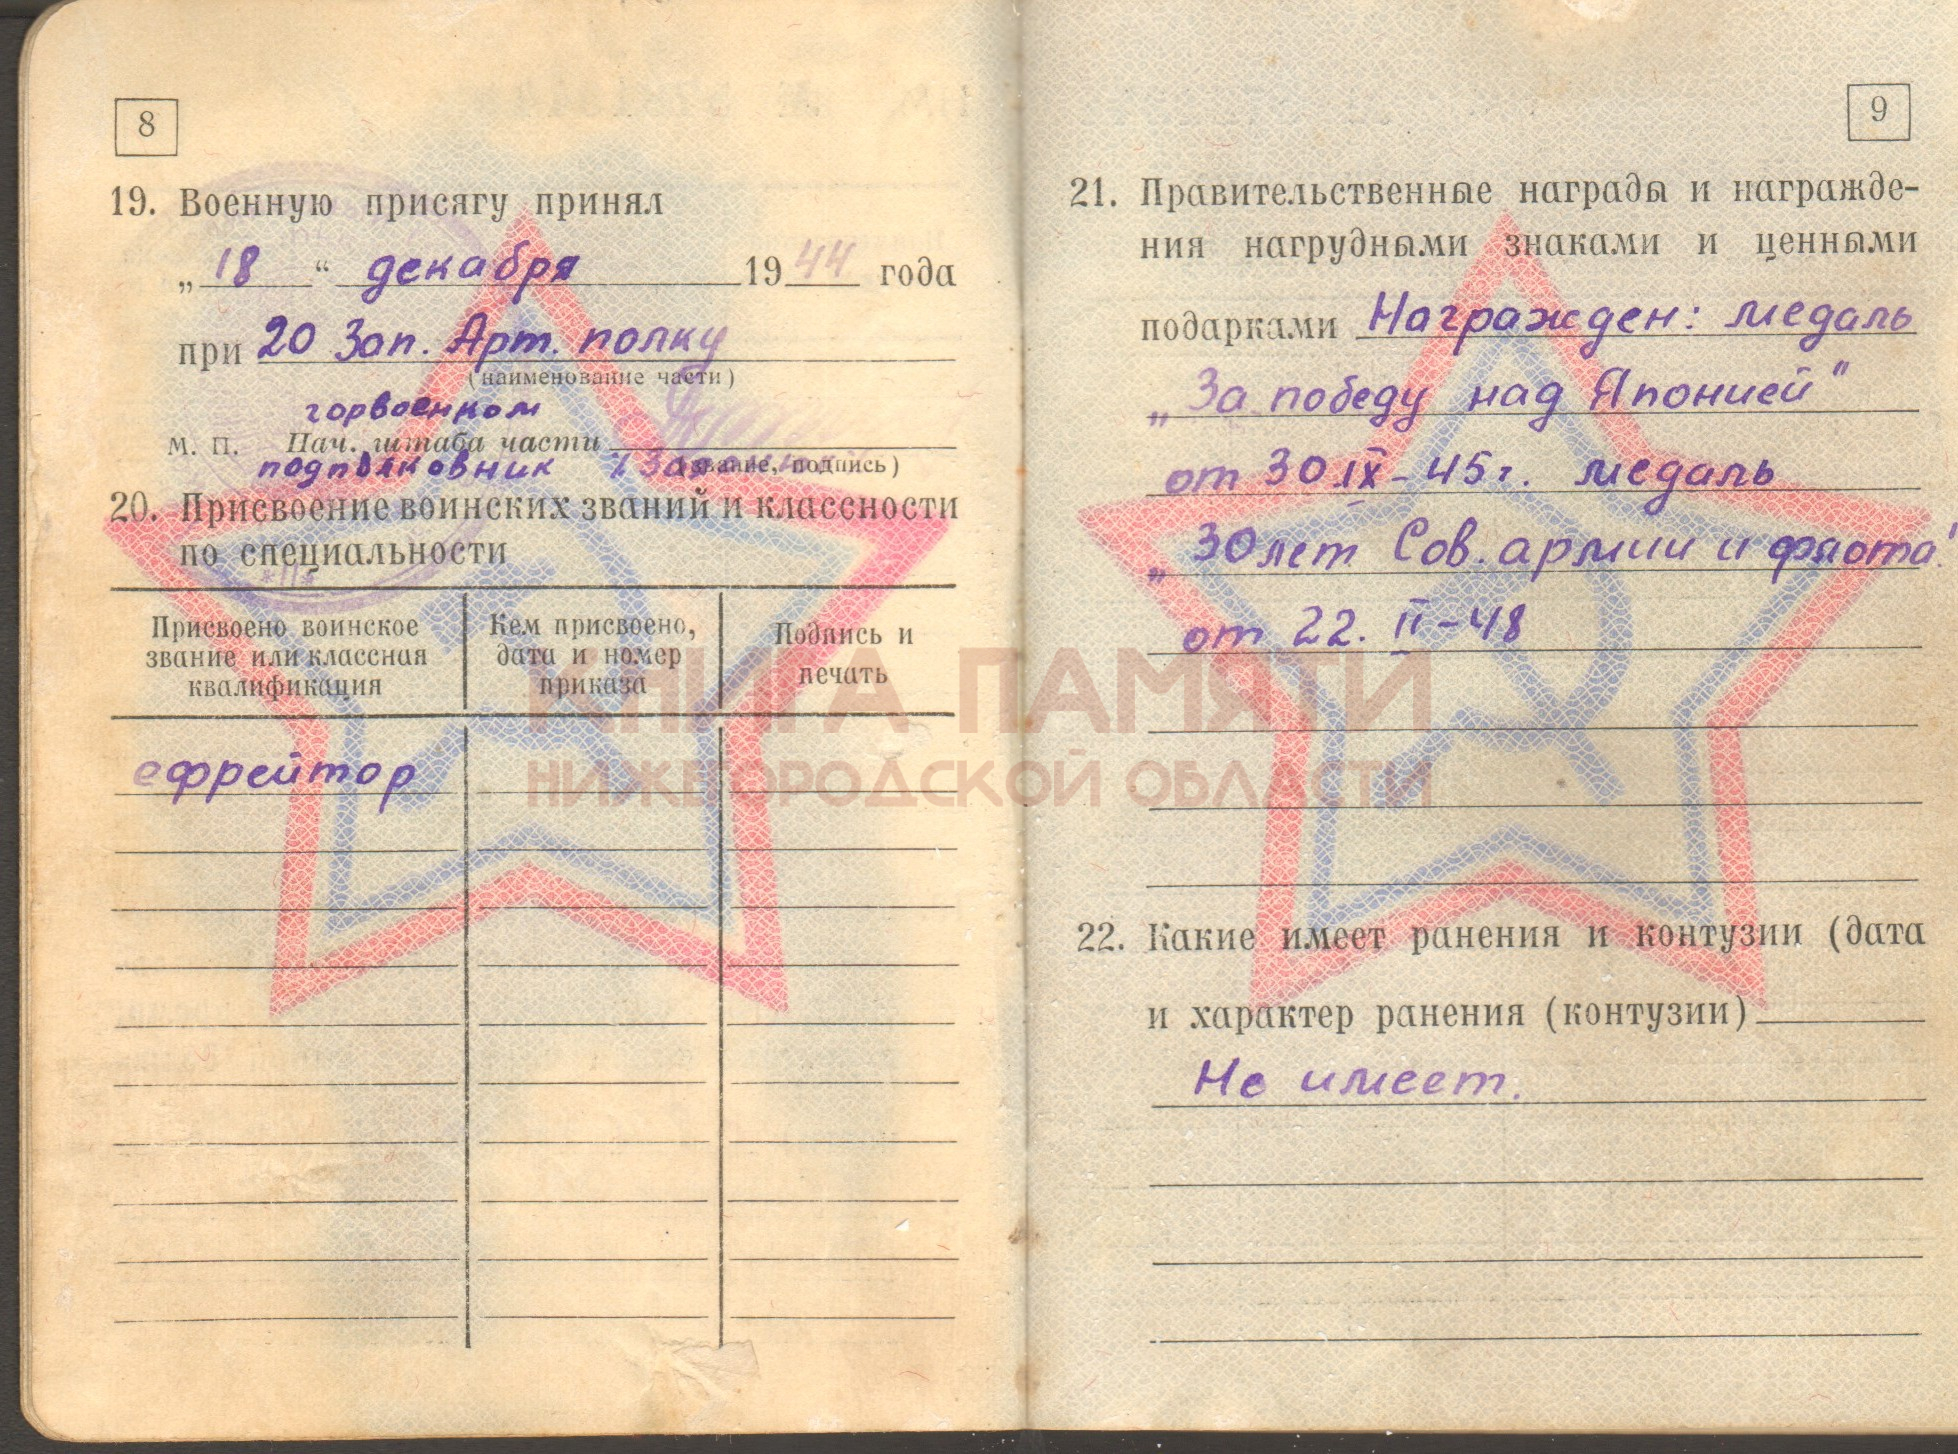 8
19. Военную присягу принял
„ 18 “ декабря 1944 года
при 20 Зап. Арт. полку
(наименование части)
горвоенком
М. П. Нач. штаба части
подполковник (звание, подпись)
20. Присвоение воинских званий и классности
по специальности
Присвоено воинское звание или классная квалификация
Кем присвоено, дата и номер приказа
Подпись и печать
ефрейтор
9
21. Правительственные награды и награжде-
ния нагрудными знаками и ценными
подарками Награжден: медаль
„За победу над Японией"
от 30 IX-45г. медаль
„30 лет Сов. армии и флота"
от 22. II-48
22. Какие имеет ранения и контузии (дата
и характер ранения (контузии)
Не имеет.
КНИГА ПАМЯТИ
НИЖЕГОРОДСКОЙ ОБЛАСТИ